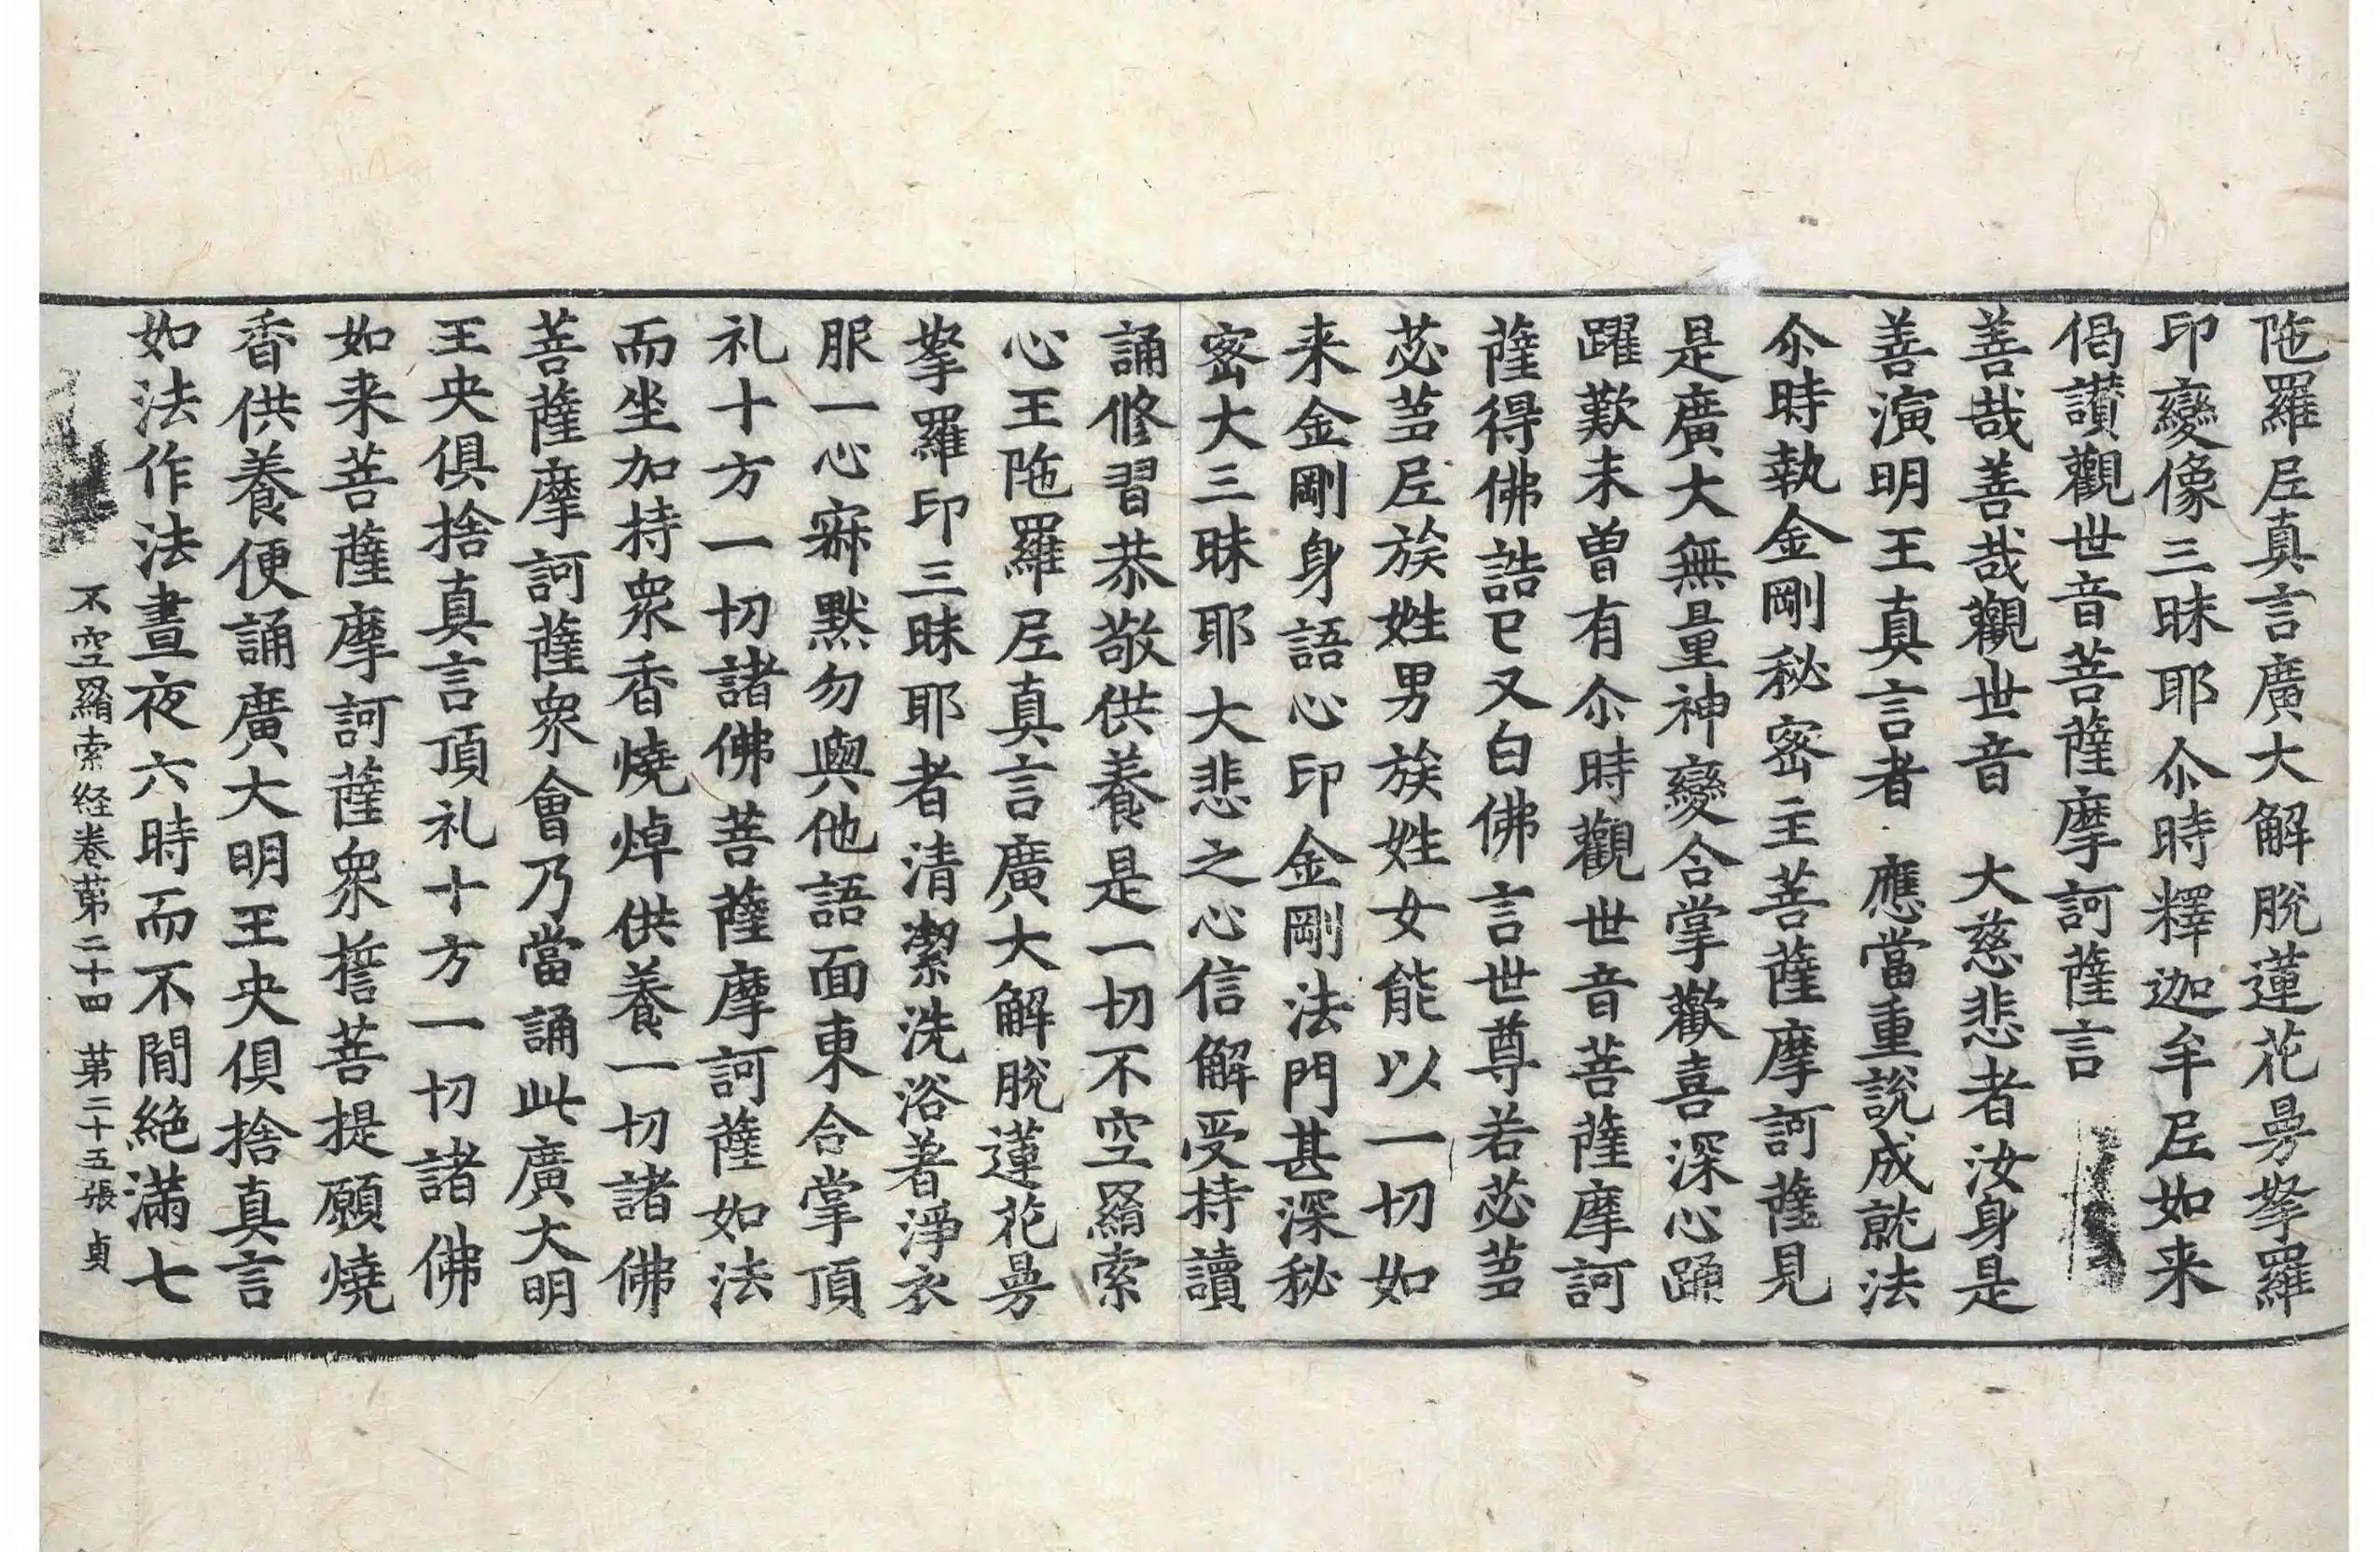 陁羅𡰱真言廣大解脫蓮花曼拏羅
印變像三昧耶尒時釋迦牟𡰱如来
偈讃觀世音菩薩摩訶薩言
善哉善哉觀世音　大慈悲者汝身是
善演明王真言者　應當重說成就法
尒時執金剛秘密主菩薩摩訶薩見
是廣大無量神變合掌歡喜深心踊
躍歎未曽有尒時觀世音菩薩摩訶
薩得佛誥已又白佛言世尊若苾蒭
苾蒭𡰱族姓男族姓女能以一切如
来金剛身語心印金剛法門甚深秘
密大三昧耶大悲之心信解受持讀
誦修習恭敬供養是一切不空羂索
心王陁羅𡰱真言廣大解脫蓮花曼
拏羅印三昧耶者清潔洗浴著淨衣
服一心寂默勿與他語面東合掌頂
礼十方一切諸佛菩薩摩訶薩如法
而坐加持衆香燒焯供養一切諸佛
菩薩摩訶薩衆會乃當誦此廣大明
王央俱捨真言頂礼十方一切諸佛
如来菩薩摩訶薩衆誓菩提願燒
香供養便誦廣大明王央俱捨真言
如法作法晝夜六時而不間絶滿七
不空羂索経卷苐二十四　苐二十五張　貞